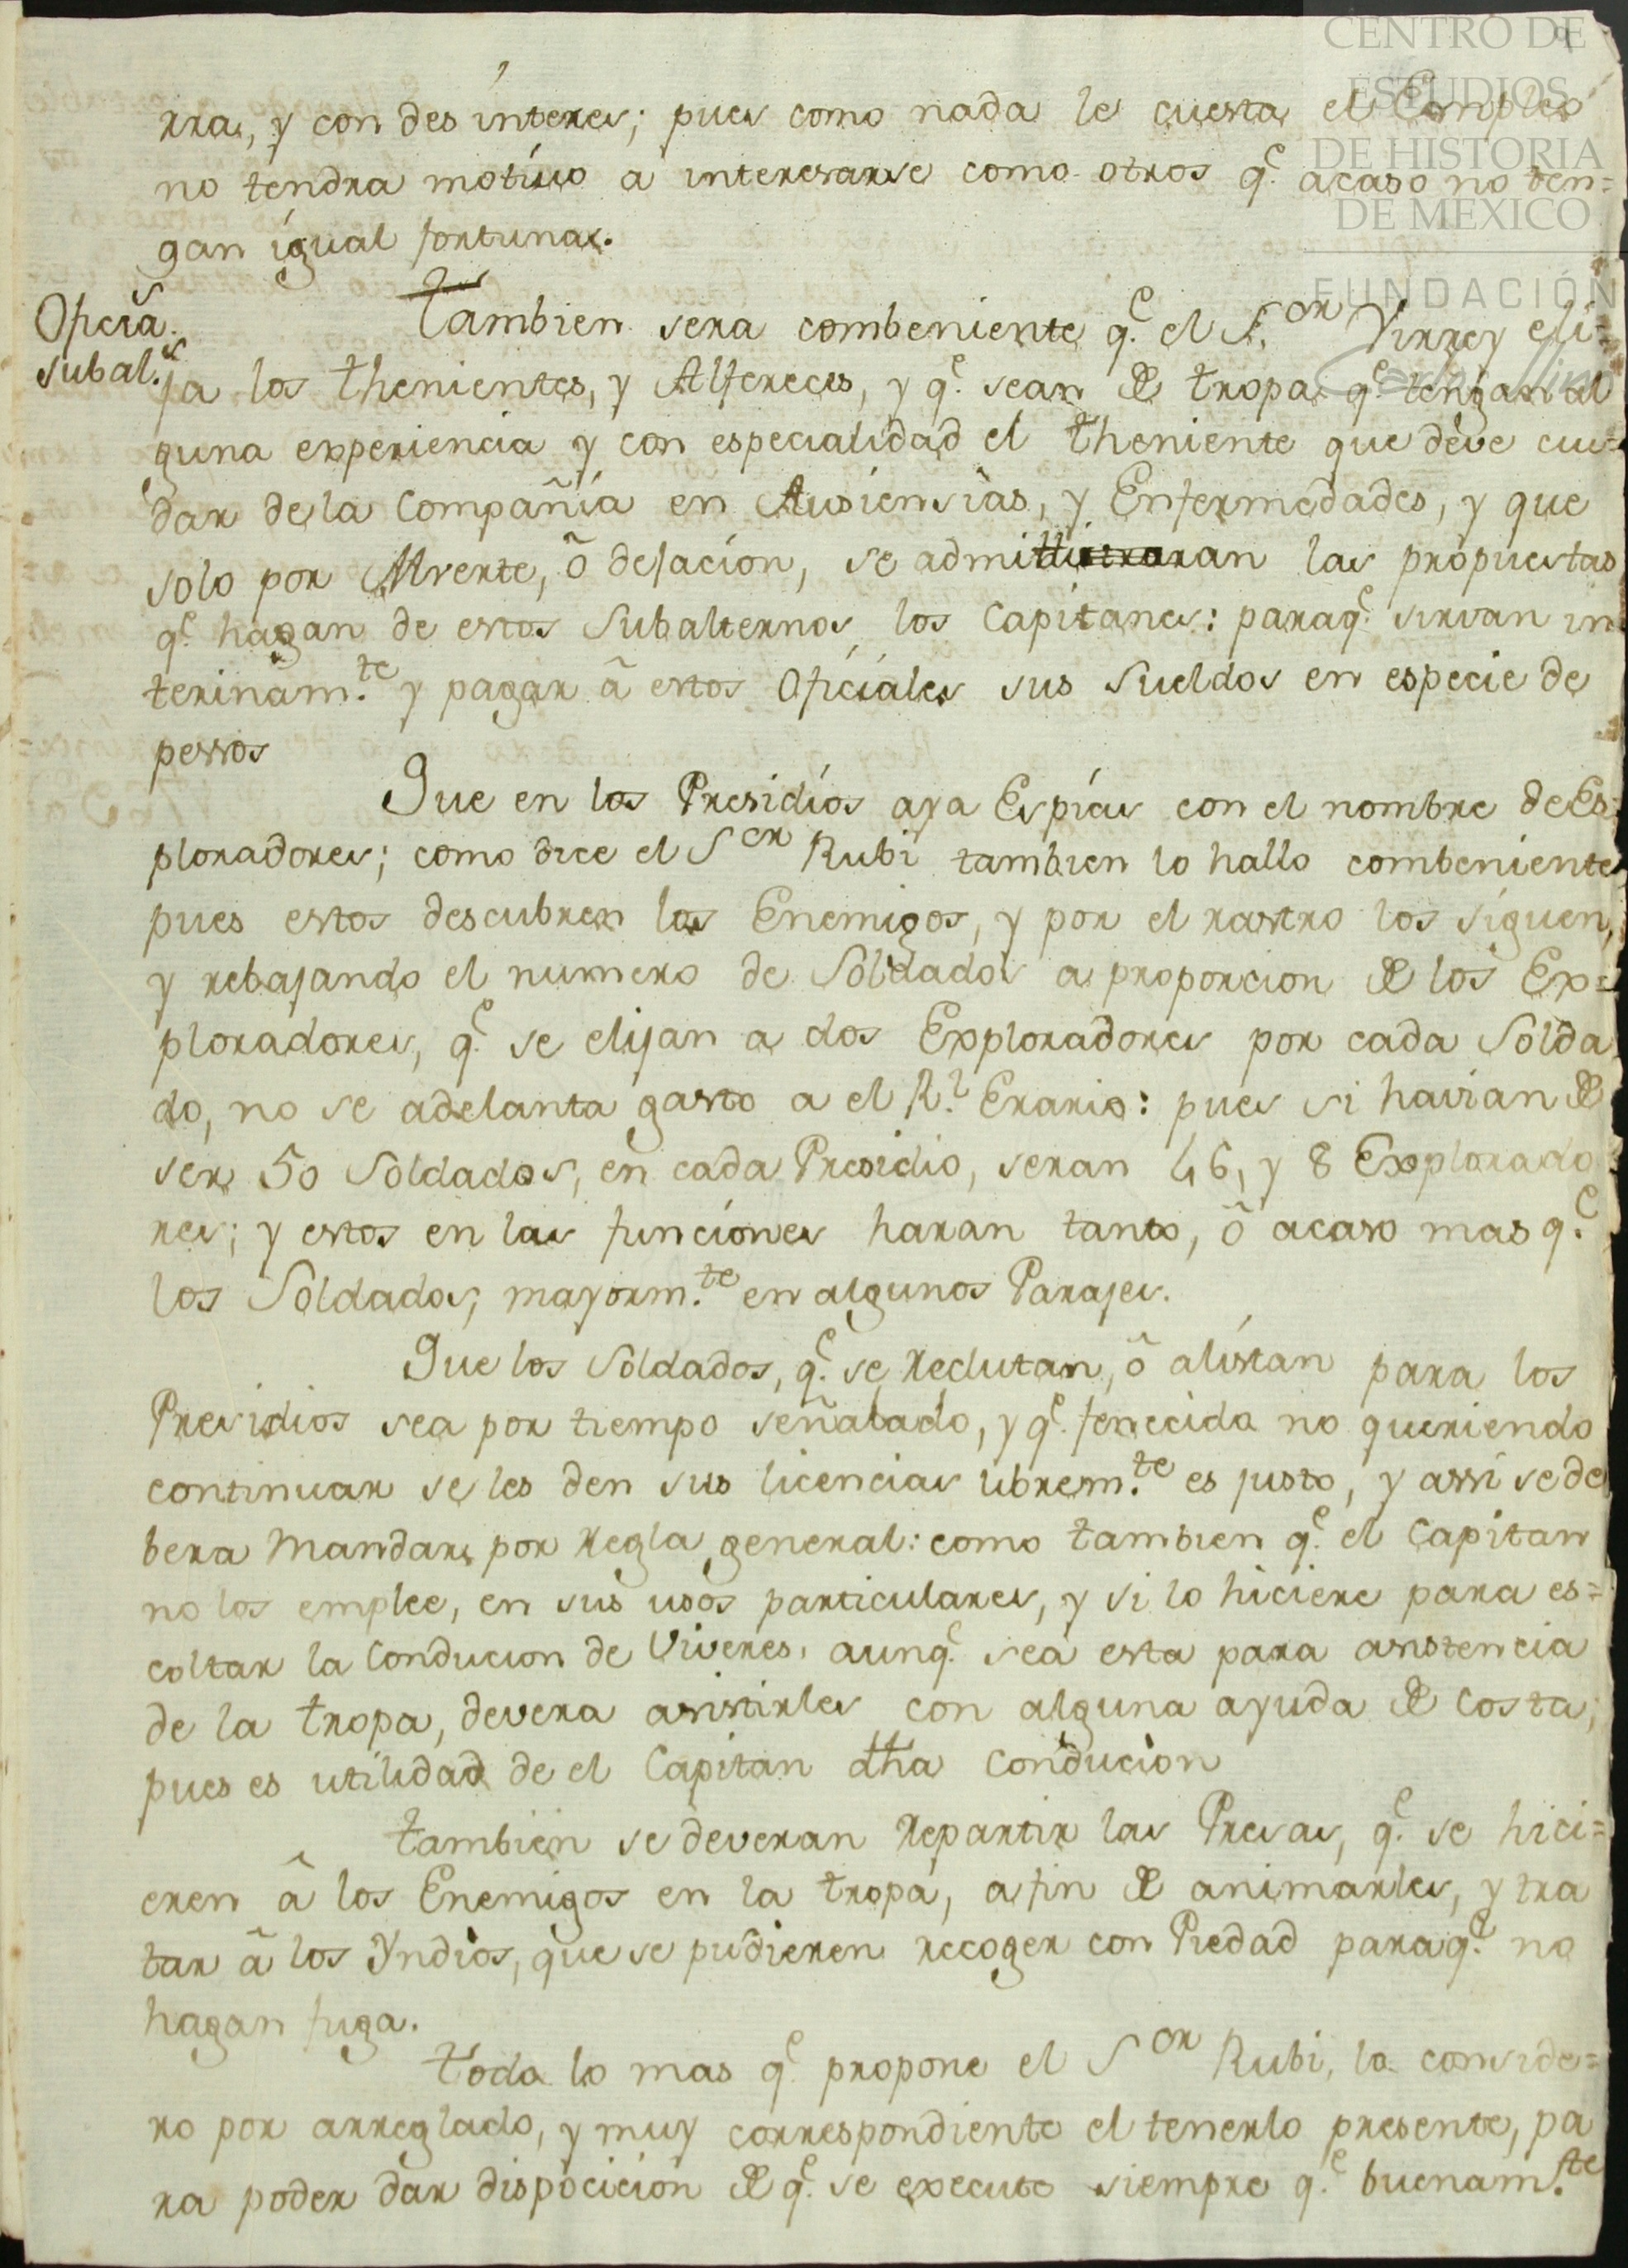 CENTRO DE
ESTUDIOS
DE HISTORIA
DE MEXICO
FUNDACIÓN
rra, y con des interes; pues como nada le cuesta el Empleo
no tendra motivo a interesarse como otros q.e acaso no ten=
gan igual fortuna.
Ofícia.s
subal.s
Tambien sera combeniente q.e el S.or Virrey eli=
ja los thenientes, y Alfereces, y q.e sean de tropa q.e tengan al
guna experiencia y con especialidad el theniente que deve cui=
dar de la Compañía en Ausiensias, y Enfermedades, y que
solo por Muerte, ô dejacion, se admitiran las propuestas
q.e hagan de estos Subalternos los Capitanes: paraq.e sirvan in
terinam.te y pagar â estos Oficiales sus Sueldos en especie de
pessos
Que en los Presidíos aya Espías con el nombre de Es=
ploradores; como dice el S.or Rubi tambien lo hallo combeniente
pues estos descubren los Enemigos, y por el rastro los siguen,
y rebajando el numero de Soldados a proporcion de los Ex=
ploradores, q.e se elijan a dos Exploradores por cada Solda
do, no se adelanta gasto a el R.l Erario: pues si havian de
ser 50 Soldados, en cada Presidio, seran 46, y 8 Explorado
res; y estos en las funciones haran tanto, ô acaso mas q.e
los Soldados, mayorm.te en algunos Parajes.
Que los Soldados, q.e se Reclutan, ô alistan para los
Presidios sea por tiempo señalado, y q.e fenecida no queriendo
continuar se les den sus licencias librem.te es justo, y assi se de
bera Mandar, por Regla general: como tambien q.e el Capitan
no los emplee, en sus usos particulares, y si lo hiciere para es=
coltar la Conducion de Viveres, aunq.e sea esta para asistencia
de la tropa, devera asistirles con alguna ayuda de Costa,
pues es utilidad de el Capitan dha Conducion
tambien se deveran Repartir las Presas, q.e se hici=
eren â los Enemigos en la tropa, a fin de animarles, y tra
tar â los Yndios, que se pudieren recoger con Piedad paraq.e no
hagan fuga.
toda lo mas q.e propone el S.or Rubi, lo conside=
ro por arreglado, y muy correspondiente el tenerlo presente, pa
ra poder dar dispocicion de q.e se execute siempre q.e buenam.te